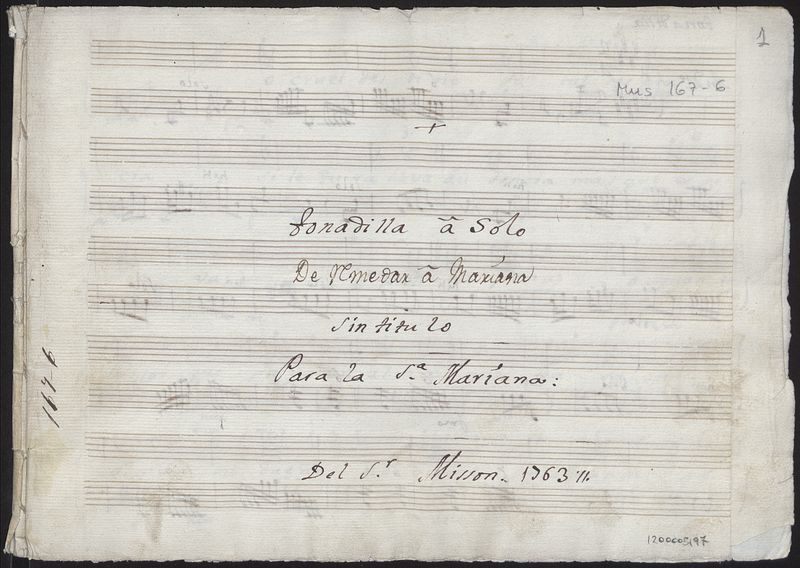 1
Mus 167-6
+
Tonadilla â Solo
De Remedar â Mariana
Sin titulo
Para la S.ª Mariana:
Del S.r Misson. 1763 //.
167-6
1200005197